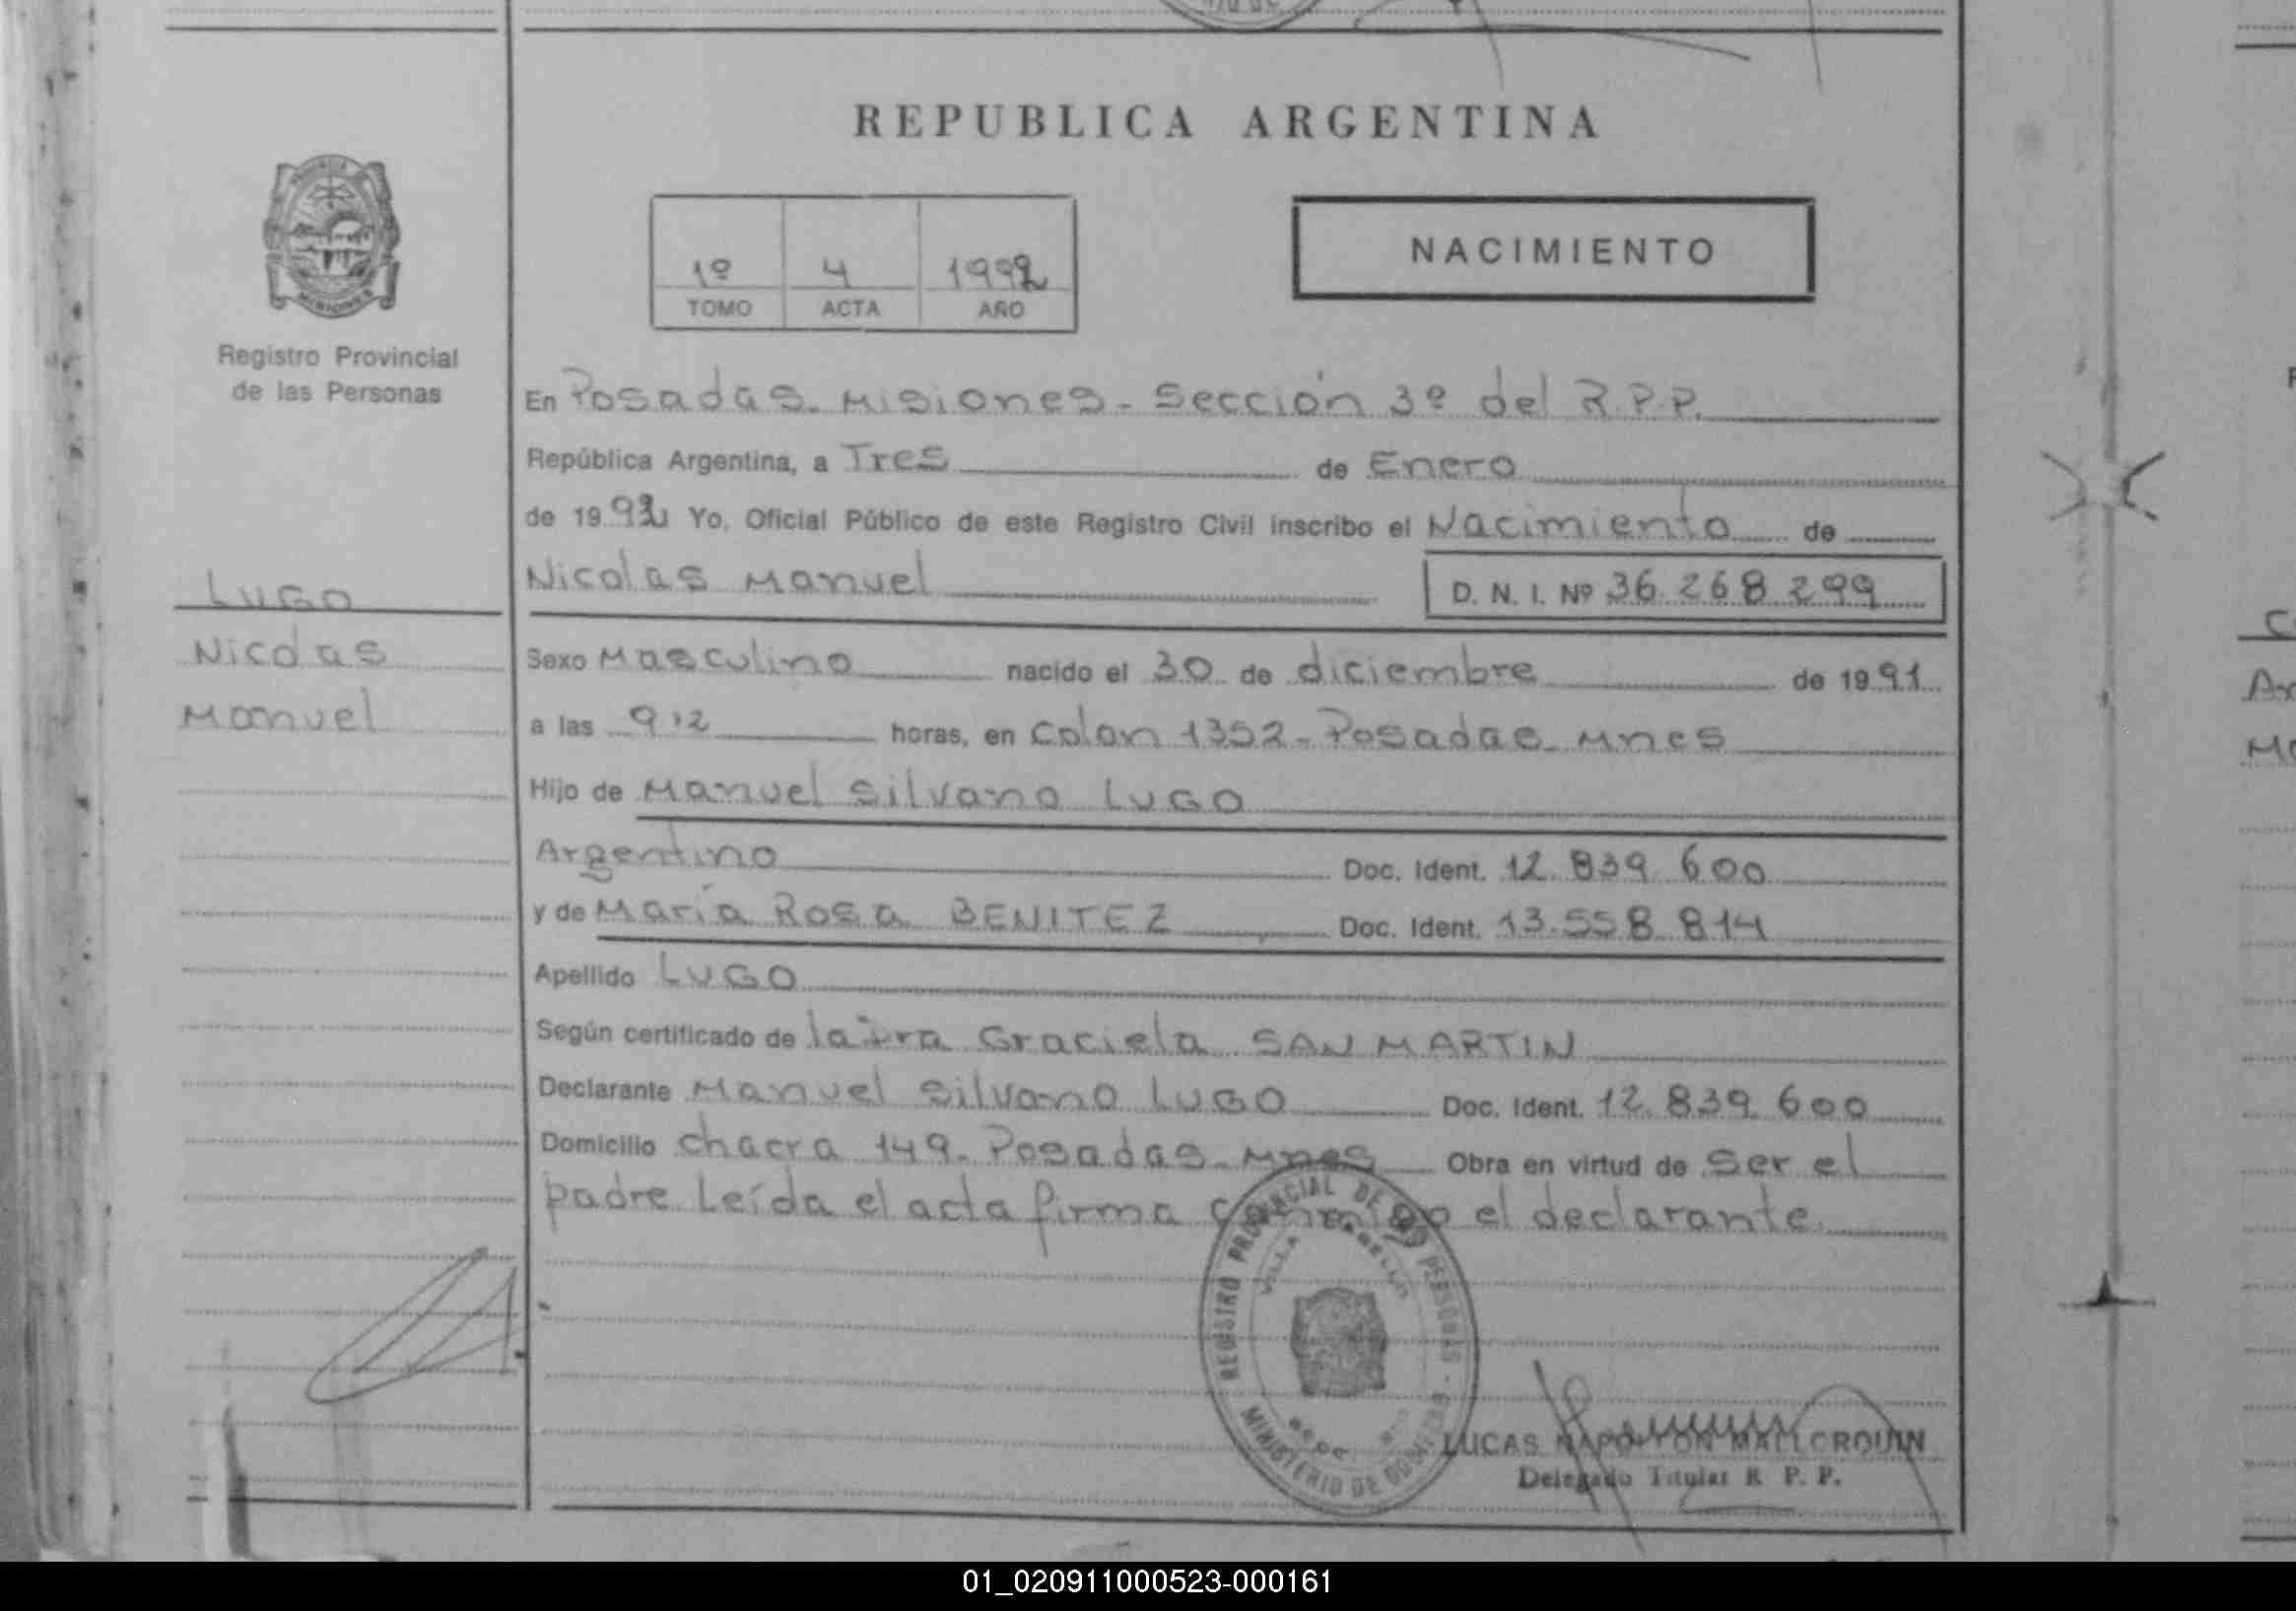 REPUBLICA ARGENTINA
1º 4 1992
TOMO ACTA AÑO
NACIMIENTO
Registro Provincial
de las Personas
En Posadas - Misiones - Sección 3º del R.P.P.
República Argentina, a Tres de Enero
de 1992 Yo, Oficial Público de este Registro Civil inscribo el Nacimiento de
Nicolas Manuel D. N. I. Nº 36.268.299
LUGO
Nicolas
Manuel
Sexo Masculino nacido el 30 de diciembre de 1991
a las 9,12 horas, en Colon 1352 - Posadas - Mnes
Hijo de Manuel Silvano LUGO
Argentino Doc. Ident. 12.839.600
y de María Rosa BENITEZ Doc. Ident. 13.558.814
Apellido LUGO
Según certificado de la Dra Graciela SAN MARTIN
Declarante Manuel Silvano LUGO Doc. Ident. 12.839.600
Domicilio chacra 149 - Posadas - Mnes Obra en virtud de ser el
padre. Leída el acta firma conmigo el declarante.
REGISTRO PROVINCIAL DE LAS PERSONAS - MINISTERIO DE GOBIERNO
VILLA
LUCAS NAPOLEON MALLORQUIN
Delegado Titular R. P. P.
01_020911000523-000161